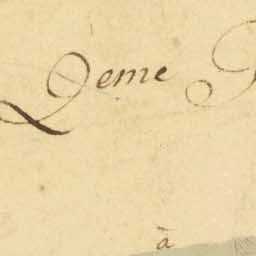 2eme
à